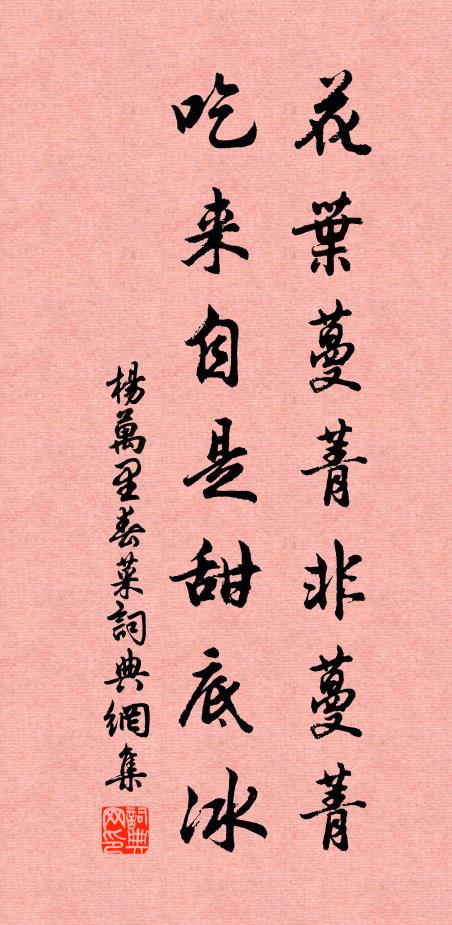 花葉蔓菁非蔓菁
吃来自是甜底冰
楊萬里春菜詞典網集
詞典网印